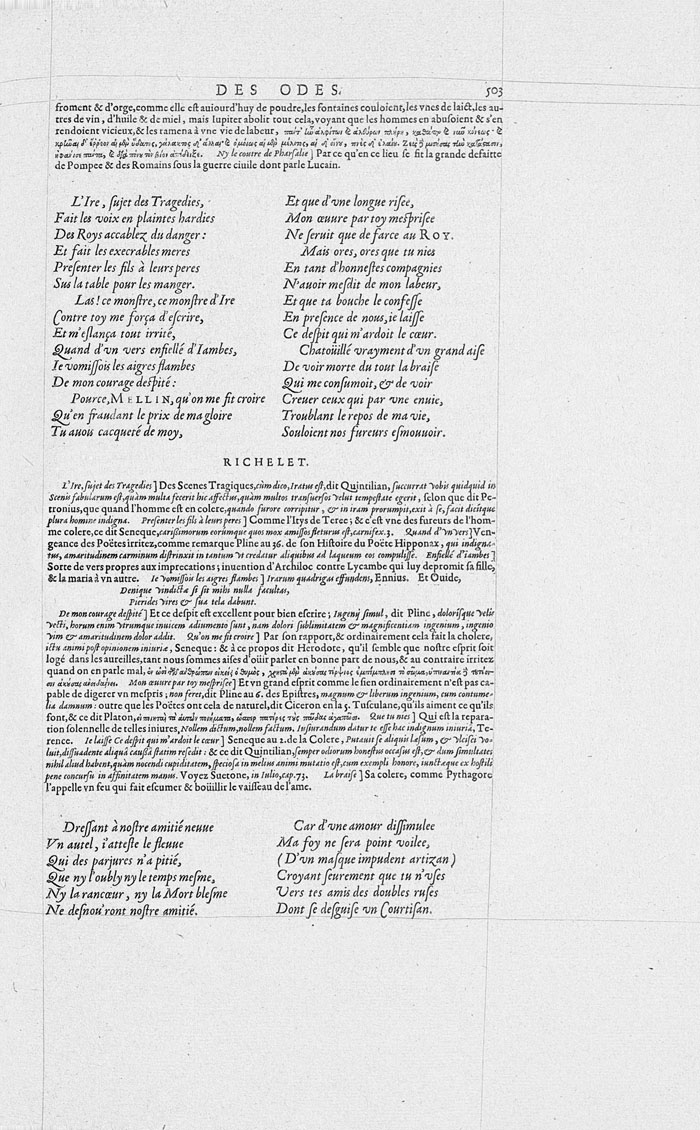 DES ODES. 503
froment & d'orge,comme elle est auiourd'huy de poudre,les fontaines couloient,les vnes de laict,les au-
tres de vin, d'huile & de miel, mais Iupiter abolit tout cela,voyant que les hommes en abusoient & s'en
rendoient vicieux,& les ramena à vne vie de labeur,
Ny le contre de Pharsalie ] Par ce qu'en ce lieu se fit la grande defaitte
de Pompee & des Romains sous la guerre ciuile dont parle Lucain.
L'Ire, sujet des Tragedies,
Fait les voix en plaintes hardies
Des Roys accablez du danger :
Et fait les execrables meres
Presenter les fils à leurs peres
Sus la table pour les manger.
Las ! ce monstre, ce monstre d'Ire
Contre toy me força d'escrire,
Et m'eslança tout irrité,
Quand d'vn vers enfiellé d'Iambes,
Ie vomissois les aigres flambes
De mon courage despité :
Pource, MELLIN, qu'on me fit croire
Qu'en fraudant le prix de ma gloire
Tu auois cacqueté de moy,
Et que d'vne longue risee,
Mon œuure par toy mesprisee
Ne seruit que de farce au ROY.
Mais ores, ores que tu nies
En tant d'honnestes compagnies
N'auoir mesdit de mon labeur,
Et que ta bouche le confesse
En presence de nous, ie laisse
Ce despit qui m'ardoit le cœur.
Chatoüillé vrayment d'vn grand aise
De voir morte du tout la braise
Qui me consumoit, & de voir
Creuer ceux qui par vne enuie,
Troublant le repos de ma vie,
Souloient nos fureurs esmouuoir.
RICHELET.
L'Ire, sujet des Tragedies ] Des Scenes Tragiques,cùm dico, Iratus est,dit Quintilian, succurrat vobis quidquid in
Scenis fabularum est,quàm multa fecerit hic affectus,quàm multos transuersos velut tempestate egerit, selon que dit Pe-
tronius,que quand l'homme est en colere,quando furore corripitur, & in iram prorumpit,exit à se, facit dicitque
plura homine indigna. Presenter les fils à leurs peres ] Comme l'Itys de Teree; & c'est vne des fureurs de l'hom-
me colere,ce dit Seneque,carissimorum eorumque quos mox amissos fleturus est,carnifex.3. Quand d'vn vers ] Ven-
geance des Poëtes irritez,comme remarque Pline au 36. de son Histoire du Poëte Hipponax, qui indigna-
tus, amaritudinem carminum distrinxit in tantum vt credatur aliquibus ad laqueum eos compulisse. Enfiellé d'iambes ]
Sorte de vers propres aux imprecations; inuention d'Archiloc contre Lycambe qui luy depromit sa fille,
& la maria à vn autre. Ie vomissois les aigres flambes ] Irarum quadrigas effundens, Ennius. Et Ouide,
Denique vindictæ si sit mihi nulla facultas,
Pierides vires & sua tela dabunt.
De mon courage despité ] Et ce despit est excellent pour bien escrire ; Ingenij simul, dit Pline, dolorísque velis
vecti, horum enim vtrumque inuicem adiumento sunt, nam dolori sublimitatem & magnificentiam ingenium, ingenio
vim & amaritudinem dolor addit. Qu'on me fit croire ] Par son rapport,& ordinairement cela fait la cholere,
ictu animi post opinionem iniuriæ, Seneque : & à ce propos dit Herodote, qu'il semble que nostre esprit soit
logé dans les aureilles,tant nous sommes aises d'oüir parler en bonne part de nous,& au contraire irritez
quand on en parle mal,
Mon œuure par toy mesprisee ] Et vn grand esprit comme le sien ordinairement n'est pas ca-
pable de digerer vn mespris ; non feret,dit Pline au 6. des Epistres, magnum & liberum ingenium, cum contume-
lia damnum : outre que les Poëtes ont cela de naturel,dit Ciceron en la 5. Tusculane,qu'ils aiment ce qu'ils
font,& ce dit Platon, Que tu nies ] Qui est la repara-
tion solennelle de telles iniures, Nollem dictum,nollem factum. Iusiurandum datur te esse hac indignum iniuria, Te-
rence. Ie laisse Ce despit qui m'ardoit le cœur ] Seneque au 2.de la Colere, Putauit se aliquis læsum, & vlcisci vo-
luit,dissuadente aliquâ caussâ statim resedit : & ce dit Quintilian,semper odiorum honestus occasus est,& dum simultates
nihil aliud habent,quàm nocendi cupiditatem, speciosa in melius animi mutatio est,cum exempli honore, iunctæque ex hostili
pene concursu in affinitatem manus. Voyez Suetone, in Iulio,cap.73. La braise ] Sa colere, comme Pythagore
l'appelle vn feu qui fait escumer & boüillir le vaisseau de l'ame.
Dressant à nostre amitié neuue
Vn autel, i'atteste le fleuue
Qui des parjures n'a pitié,
Que ny l'oubly ny le temps mesme,
Ny la rancœur, ny la Mort blesme
Ne desnou'ront nostre amitié.
Car d'vne amour dissimulee
Ma foy ne sera point voilee,
(D'vn masque impudent artizan)
Croyant seurement que tu n'vses
Vers tes amis des doubles ruses
Dont se desguise vn Courtisan.